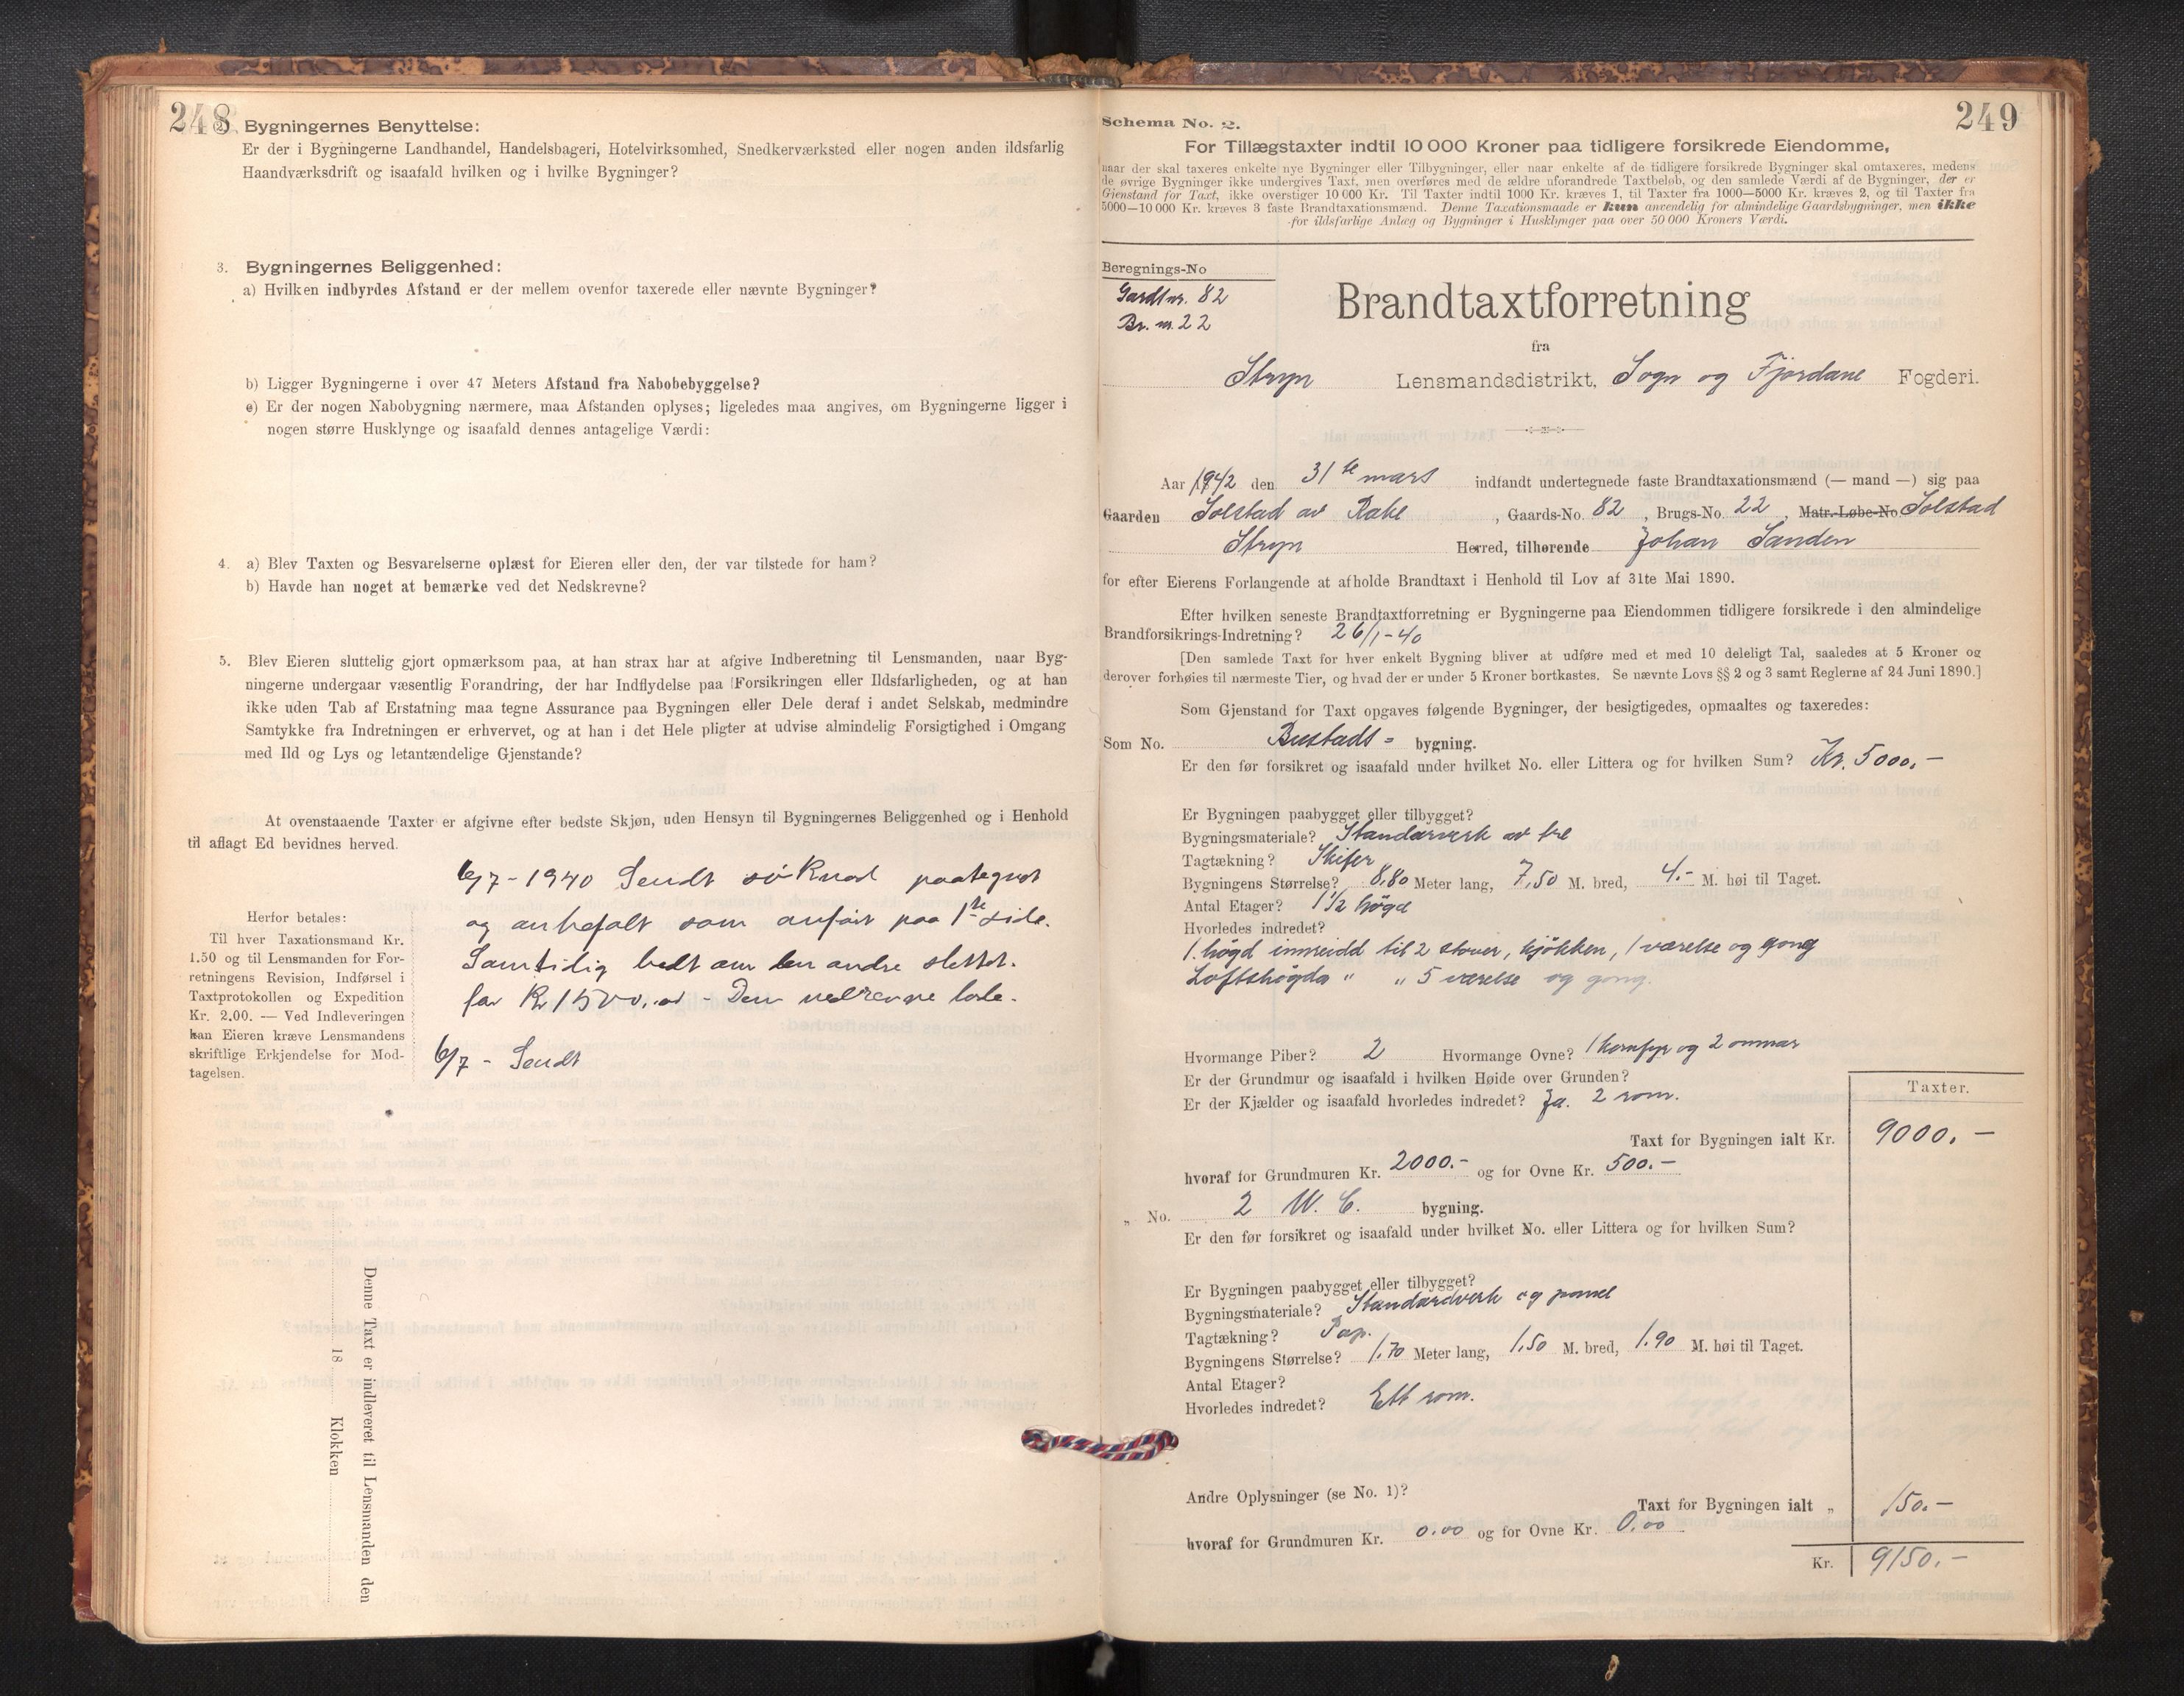 248
2. Bygningernes Benyttelse:
Er der i Bygningerne Landhandel, Handelsbageri, Hotelvirksomhed, Snedkerværksted eller nogen anden ildsfarlig
Haandværksdrift og isaafald hvilken og i hvilke Bygninger?
3. Bygningernes Beliggenhed:
a) Hvilken indbyrdes Afstand er der mellem ovenfor taxerede eller nævnte Bygninger?
b) Ligger Bygningerne i over 47 Meters Afstand fra Nabobebyggelse?
c) Er der nogen Nabobygning nærmere, maa Afstanden oplyses; ligeledes maa angives, om Bygningerne ligger i
nogen større Husklynge og isaafald dennes antagelige Værdi:
4. a) Blev Taxten og Besvarelserne oplæst for Eieren eller den, der var tilstede for ham?
b) Havde han noget at bemærke ved det Nedskrevne?
5. Blev Eieren sluttelig gjort opmærksom paa, at han strax har at afgive Indberetning til Lensmanden, naar Byg-
ningerne undergaar væsentlig Forandring, der har Indflydelse paa Forsikringen eller Ildsfarligheden, og at han
ikke uden Tab af Erstatning maa tegne Assurance paa Bygningen eller Dele deraf i andet Selskab, medmindre
Samtykke fra Indretningen er erhvervet, og at han i det Hele pligter at udvise almindelig Forsigtighed i Omgang
med Ild og Lys og letantændelige Gjenstande?
At ovenstaaende Taxter er afgivne efter bedste Skjøn, uden Hensyn til Bygningernes Beliggenhed og i Henhold
til aflagt Ed bevidnes herved.
6/7 - 1940 Sendt søknad paategnet
og anbefalt som anført paa 1ste side.
Samtidig bedt om den andre slettet.
for Kr 1500,00 - Den nedrevne løde.
6/7 - Sendt
Herfor betales:
Til hver Taxationsmand Kr.
1.50 og til Lensmanden for For-
retningens Revision, Indførsel i
Taxtprotokollen og Expedition
Kr. 2.00. — Ved Indleveringen
kan Eieren kræve Lensmandens
skriftlige Erkjendelse for Mod-
tagelsen.
Denne Taxt er indleveret til Lensmanden den
18 Klokken
249
Schema No. 2.
For Tillægstaxter indtil 10 000 Kroner paa tidligere forsikrede Eiendomme,
naar der skal taxeres enkelte nye Bygninger eller Tilbygninger, eller naar enkelte af de tidligere forsikrede Bygninger skal omtaxeres, medens
de øvrige Bygninger ikke undergives Taxt, men overføres med de ældre uforandrede Taxtbeløb, og den samlede Værdi af de Bygninger, der er
Gjenstand for Taxt, ikke overstiger 10 000 Kr. Til Taxter indtil 1000 Kr. kræves 1, til Taxter fra 1000—5000 Kr. kræves 2, og til Taxter fra
5000—10 000 Kr. kræves 3 faste Brandtaxationsmænd. Denne Taxationsmaade er kun anvendelig for almindelige Gaardsbygninger, men ikke
for ildsfarlige Anlæg og Bygninger i Husklynger paa over 50 000 Kroners Værdi.
Beregnings-No
Gardsnr. 82
Br. nr. 22
Brandtaxtforretning
fra
Stryn Lensmandsdistrikt, Sogn og Fjordane Fogderi.
Aar 1942 den 31te mars indfandt undertegnede faste Brandtaxationsmænd (— mand —) sig paa
Gaarden Solstad av Rake, Gaards-No. 82, Brugs-No. 22, Matr.-Løbe-No Solstad
Stryn Herred, tilhørende Johan Sanden
for efter Eierens Forlangende at afholde Brandtaxt i Henhold til Lov af 31te Mai 1890.
Efter hvilken seneste Brandtaxtforretning er Bygningerne paa Eiendommen tidligere forsikrede i den almindelige
Brandforsikrings-Indretning? 26/1-40
[Den samlede Taxt for hver enkelt Bygning bliver at udføre med et med 10 deleligt Tal, saaledes at 5 Kroner og
derover forhøies til nærmeste Tier, og hvad der er under 5 Kroner bortkastes. Se nævnte Lovs §§ 2 og 3 samt Reglerne af 24 Juni 1890.]
Som Gjenstand for Taxt opgaves følgende Bygninger, der besigtigedes, opmaaltes og taxeredes:
Som No. Bustads= bygning.
Er den før forsikret og isaafald under hvilket No. eller Littera og for hvilken Sum? Kr. 5000,-
Er Bygningen paabygget eller tilbygget?
Bygningsmateriale? Standarverk av tre
Tagtækning? Skifer
Bygningens Størrelse? 8,80 Meter lang, 7,50 M. bred, 4.- M. høi til Taget.
Antal Etager? 1 1/2 högd
Hvorledes indredet?
1. högd innreidd til 2 stover, kjökken, 1 værelse og gong
Loftshögda " " 5 værelse og gong.
Hvormange Piber? 2 Hvormange Ovne? 1 komfyr og 2 omnar
Er der Grundmur og isaafald i hvilken Høide over Grunden?
Er der Kjælder og isaafald hvorledes indredet? Ja. 2 rom.
Taxter.
Taxt for Bygningen ialt Kr. 9000.-
hvoraf for Grundmuren Kr. 2000.- og for Ovne Kr. 500.-
„ No. 2 W. C. bygning.
Er den før forsikret og isaafald under hvilket No. eller Littera og for hvilken Sum?
Er Bygningen paabygget eller tilbygget?
Bygningsmateriale? Standardverk og panel
Tagtækning? Pap.
Bygningens Størrelse? 1.70 Meter lang, 1,50 M. bred, 1.90 M. høi til Taget.
Antal Etager?
Hvorledes indredet? Ett rom.
Andre Oplysninger (se No. 1)?
Taxt for Bygningen ialt „ 150.-
hvoraf for Grundmuren Kr. 0.00 og for Ovne Kr. 0.00
Kr. 9150.-